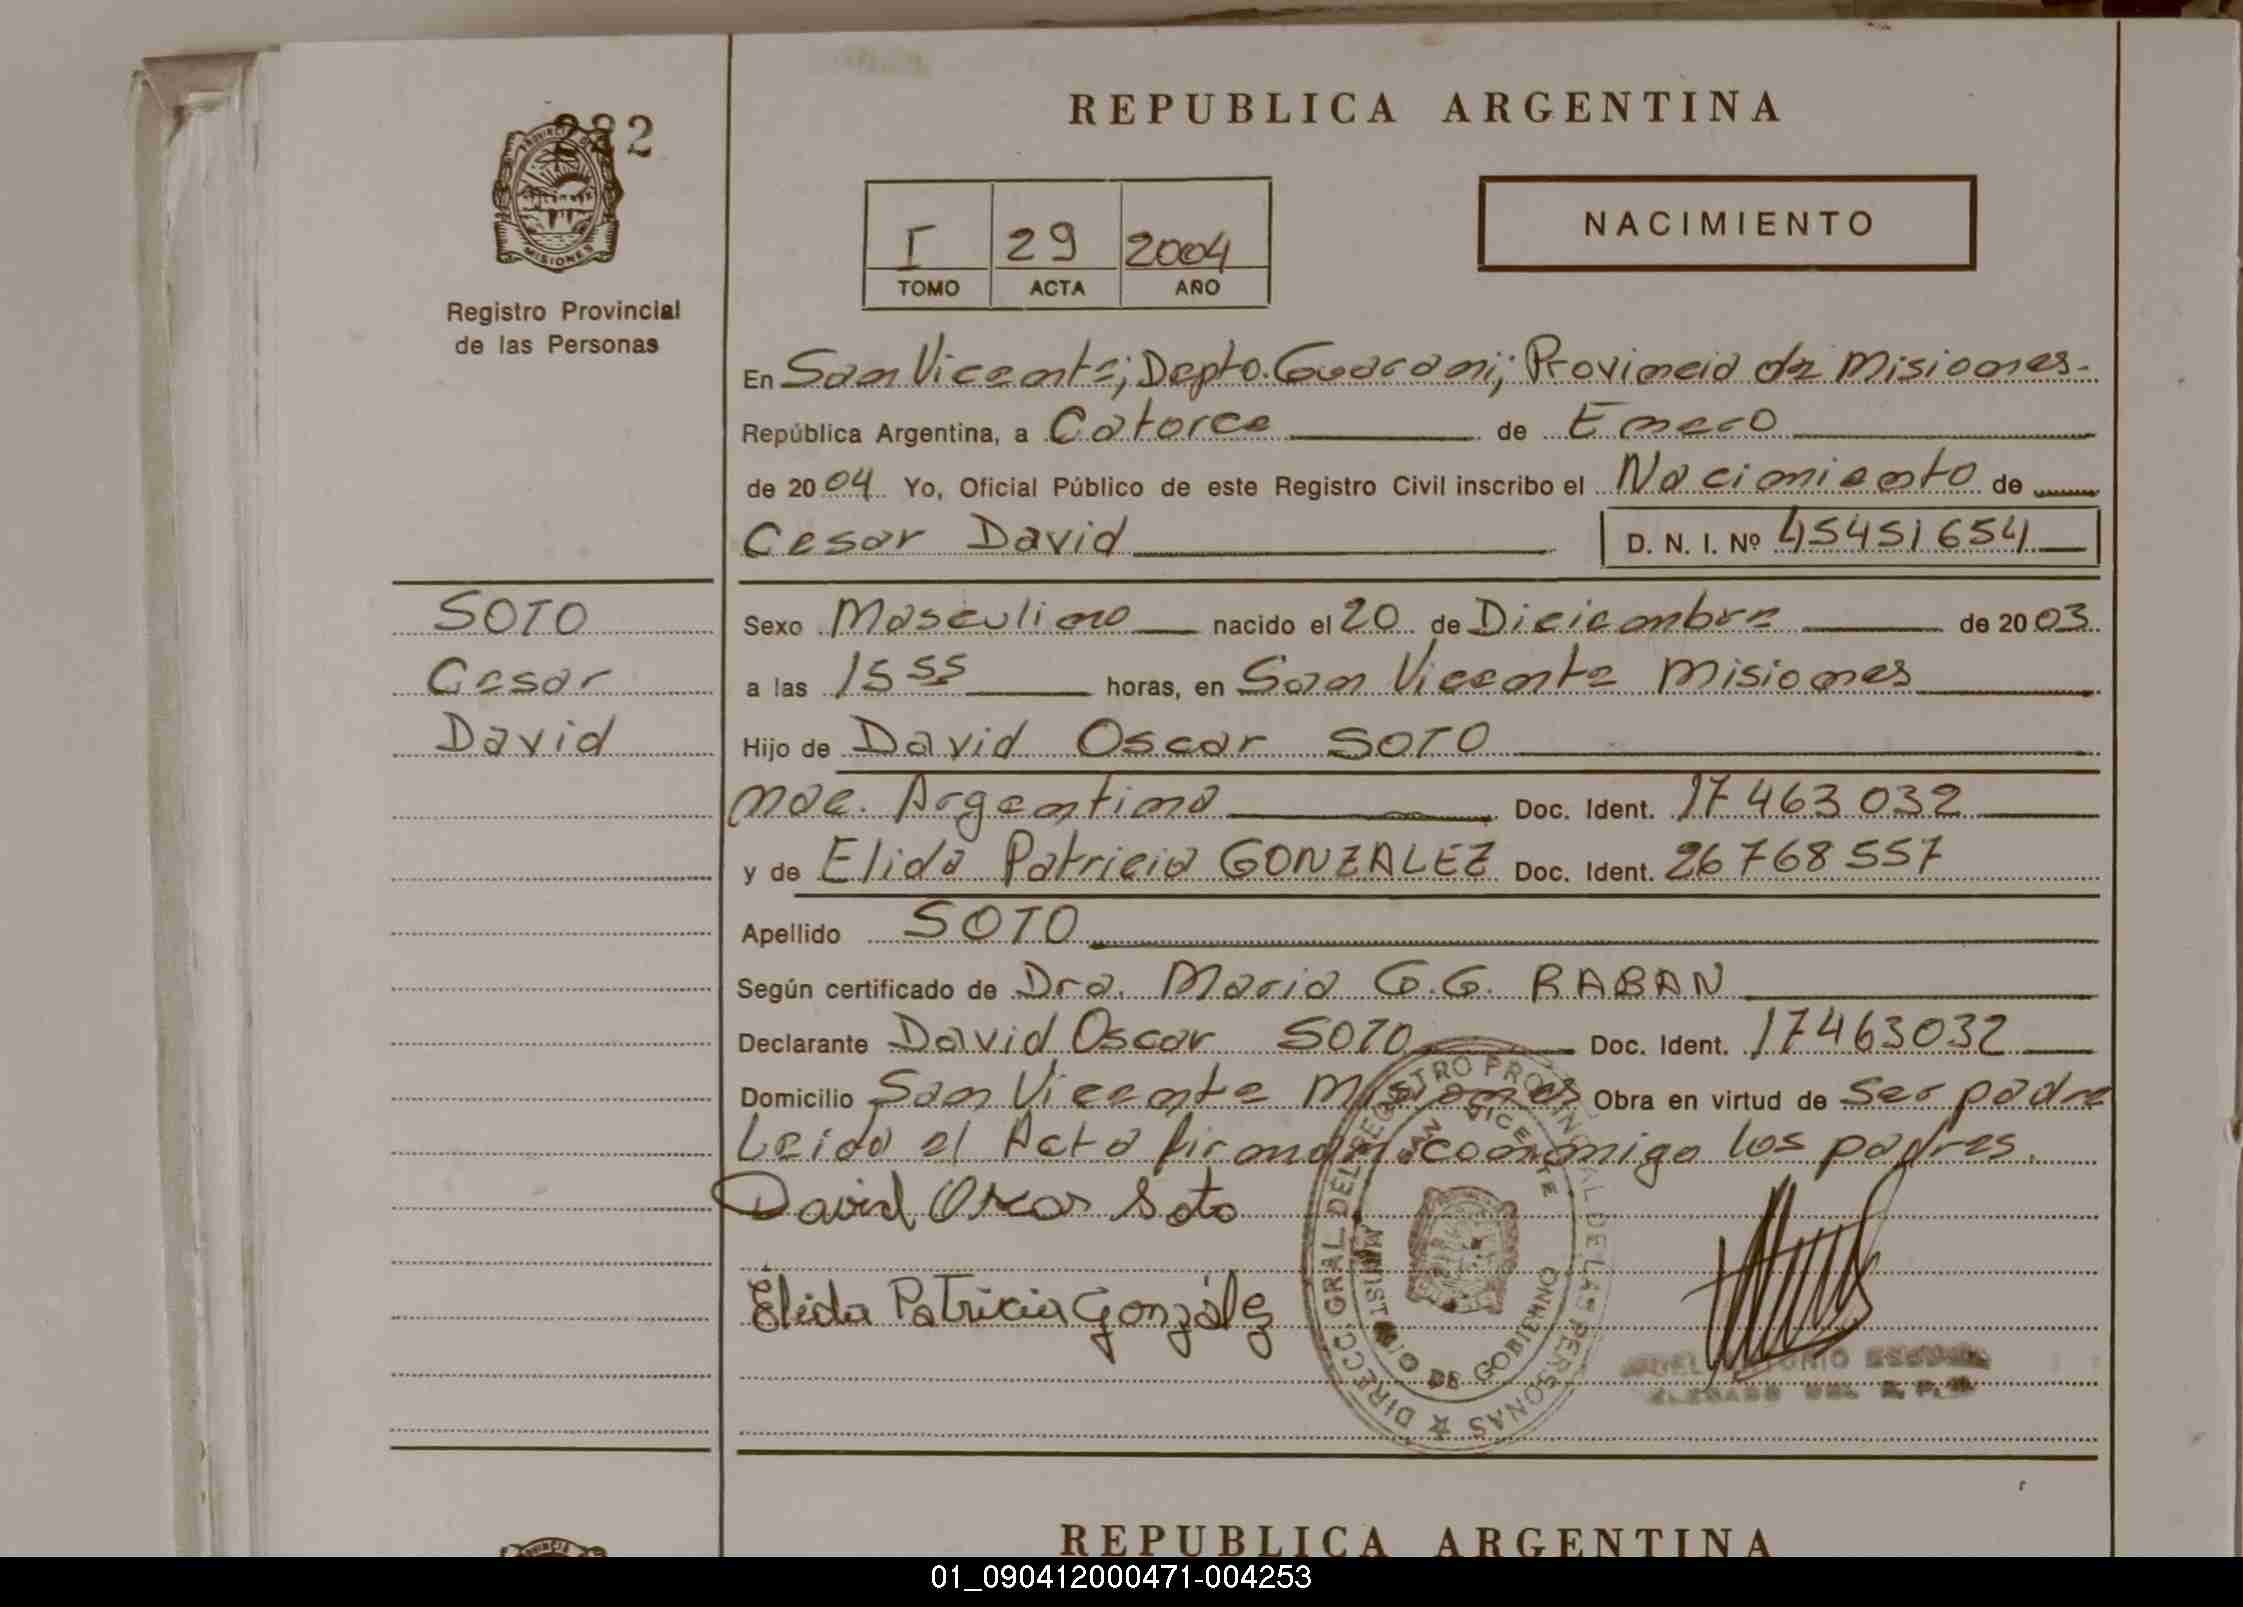 REPUBLICA ARGENTINA
PROVINCIA DE
MISIONES
Registro Provincial
de las Personas
NACIMIENTO
I 29 2004
TOMO ACTA AÑO
En San Vicente; Depto. Guarani; Provincia de Misiones.
República Argentina, a Catorce de Enero
de 2004 Yo, Oficial Público de este Registro Civil inscribo el Nacimiento de
Cesar David D. N. I. Nº 45451654
SOTO
Cesar
David
Sexo Masculino nacido el 20 de Diciembre de 2003
a las 15 55 horas, en San Vicente Misiones
Hijo de David Oscar SOTO
Nac. Argentina Doc. Ident. 17463032
y de Elida Patricia GONZALEZ Doc. Ident. 26768557
Apellido SOTO
Según certificado de Dra. Maria G.G. RABAN
Declarante David Oscar SOTO Doc. Ident. 17463032
Domicilio San Vicente Misiones Obra en virtud de Ser padre
Leida el Acta firman conmigo los padres.
David Oscar Soto
Elida Patricia González
DIRECC. GRAL. DEL REGISTRO PROVINCIAL DE LAS PERSONAS
SAN VICENTE
MINISTERIO DE GOBIERNO
REPUBLICA ARGENTINA
01_090412000471-004253